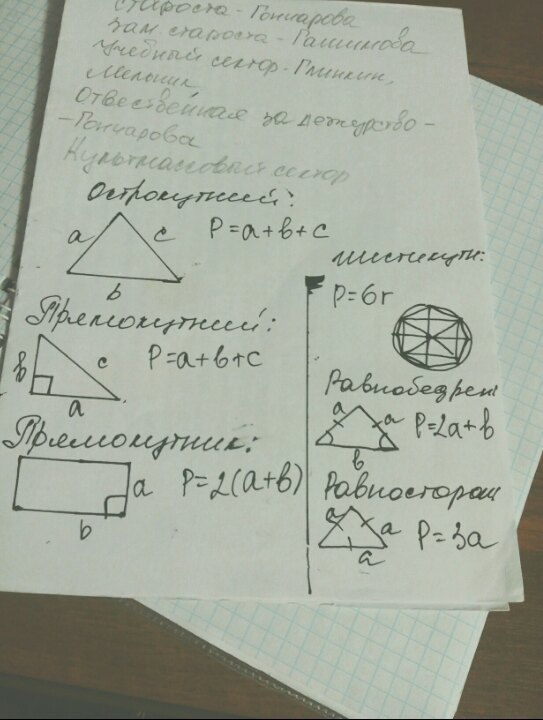 староста - Гончарова
Зам староста - Гашимова
Учебный сектор - Глинкин,
Мельник
Отвественная за дежурство -
- Гончарова
Культмассовый сектор
Острокутний:
a c P=a+b+c
b
Прямокутний:
b c P=a+b+c
a
Прямокутник:
a P=2(a+b)
b
шистикутн:
P=6r
Равнобедрен
a a P=2a+b
b
Равносторон
a a P=3a
a